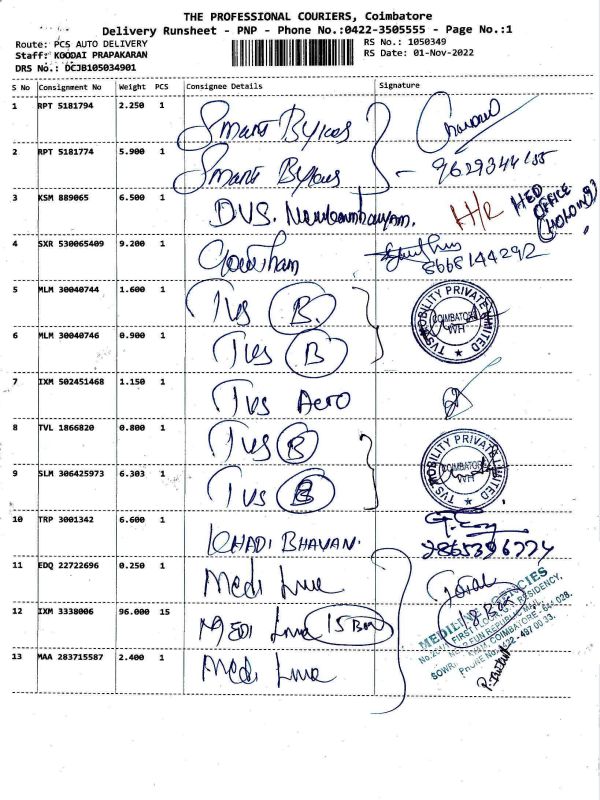 THE PROFESSIONAL COURIERS, Coimbatore
Delivery Runsheet - PNP - Phone No.:0422-3505555 - Page No.:1
Route: PCS AUTO DELIVERY
RS No.: 1050349
Staff: KOODAI PRAPAKARAN
RS Date: 01-Nov-2022
DRS No.: DCJB105034901
S No Consignment No Weight PCS Consignee Details Signature
1 RPT 5181794 2.250 1 Smart Bykes
2 RPT 5181774 5.900 1 Smart Bykes
3 KSM 889065 6.500 1 DVS. H/R HED OFFICE (HOLDING)
4 SXR 530065409 9.200 1 Gowtham 8668144292
5 MLM 30040744 1.600 1 TVS B TVS MOBILITY PRIVATE LIMITED COIMBATORE WH
6 MLM 30040746 0.900 1 TVS B
7 IXM 502451468 1.150 1 TVS Aero
8 TVL 1866820 0.800 1 TVS B
9 SLM 306425973 6.303 1 TVS B TVS MOBILITY PRIVATE LIMITED COIMBATORE WH
10 TRP 3001342 6.600 1 KHADI BHAVAN.
11 EDQ 22722696 0.250 1 Medi Line Total
12 IXM 3338006 96.000 15 MEDI Line 15 Box
MEDILINE AGENCIES
13 MAA 283715587 2.400 1 Medi Line